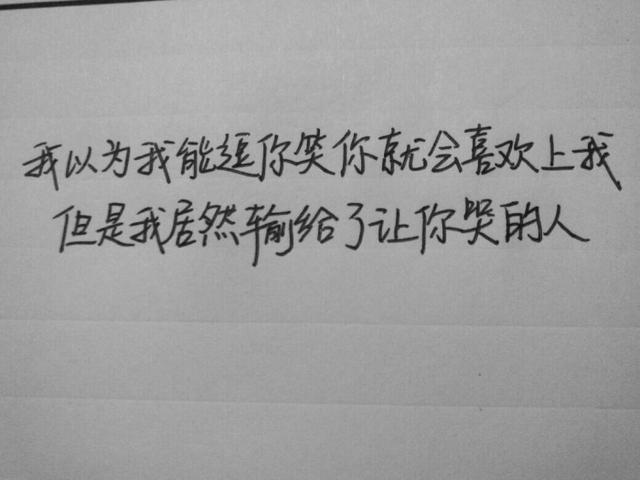 我以为我能逗你笑你就会喜欢上我
但是我居然输给了让你哭的人